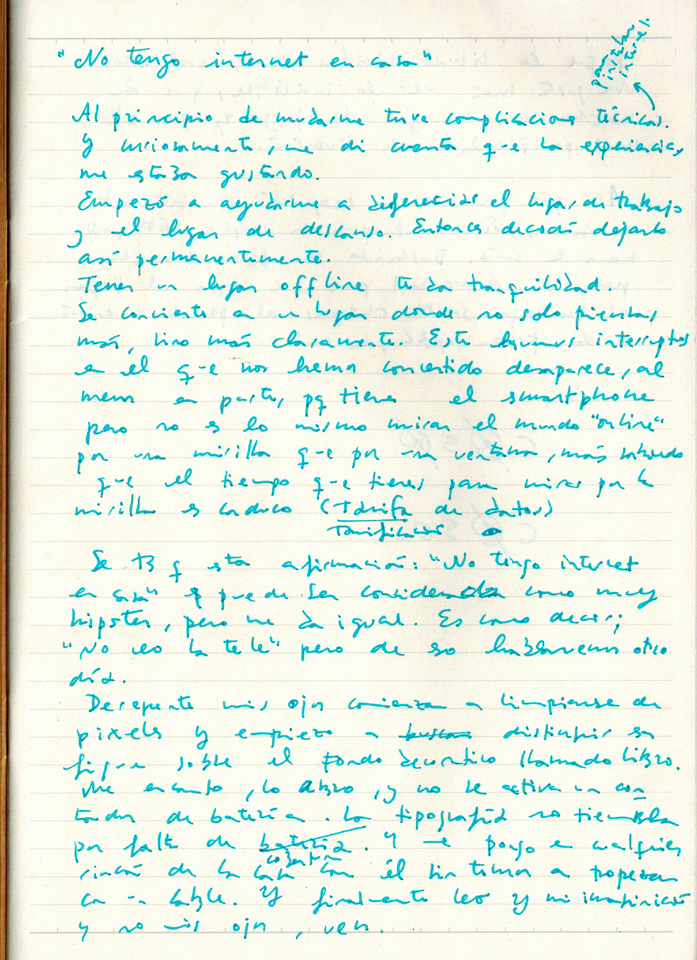 "No tengo internet en casa"
para instalar
internet.
Al principio de mudarme tuve complicaciones técnicas.
Y curiosamente, me di cuenta q-e la experiencia
me estaba gustando.
Empezó a ayudarme a diferenciar el lugar de trabajo
y el lugar de descanso. Entonces decidí dejarlo
así permanentemente.
Tener un lugar offline te da tranquilidad.
Se convierte en un lugar donde no solo piensas
más, sino más claramente. Este humus interruptos
en el q-e nos hemos convertido desaparece, al
menos en parte, pq tienes el smartphone
pero no es lo mismo mirar el mundo "online"
por una mirilla q-e por una ventana, más
q-e el tiempo q-e tienes para mirar por la
mirilla es caduco (Tarifa de datos)
Tarificar
Se tb q esta afirmación: "No tengo internet
en casa" puede ser considerada como muy
hipster, pero me da igual. Es como decir;
"No veo la tele" pero de eso hablaremos otro
día.
Derepente mis ojos comienzan a limpiarse de
pixels y empiezo a buscar distinguir esa
figura sobre el fondo decorativo llamado libro.
Me encanto, lo abro, y no se activa un con
tador de batería. La tipografía no tiembla
por falta de batería. Y me pongo en cualquier
cobertura
rincón de la casa con él sin temor a tropezar
con un cable. Y finalmente leo y mi imaginación
y no mis ojos, ven.